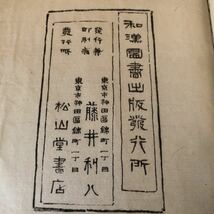 和漢圖書出版發行所
東京市神田區錦町一丁目
發行兼
印刷者
藤井利八
東京市神田區錦町一丁目
發行所
松山堂書店